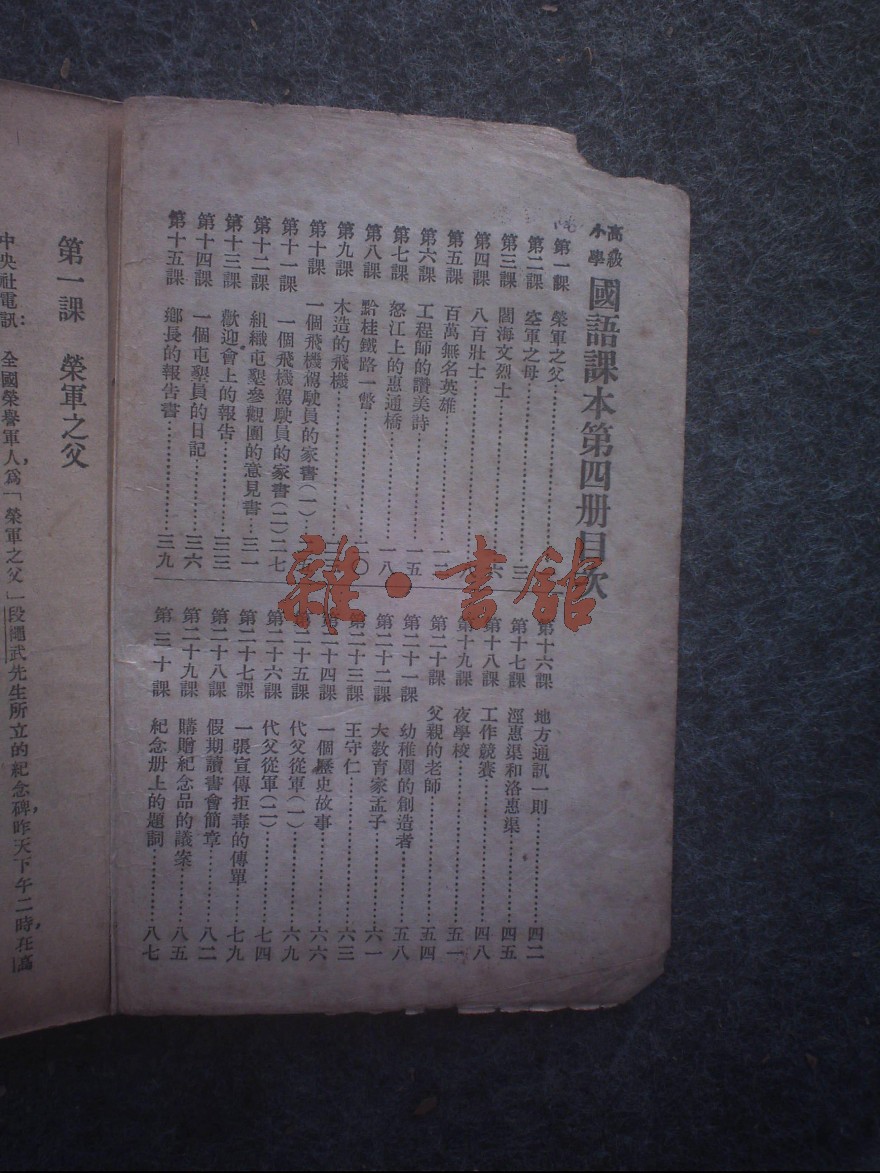 高級小學 國語課本第四册目次
第一課 榮軍之父
第二課 空軍之母 三
第三課 閻海文烈士 六
第四課 八百壯士
第五課 百萬無名英雄 一二
第六課 工程師的讚美詩 一五
第七課 怒江上的惠通橋 一八
第八課 黔桂鐵路一瞥 二〇
第九課 木造的飛機
第十課 一個飛機駕駛員的家書(一)
第十一課 一個飛機駕駛員的家書(二) 二七
第十二課 組織屯墾參觀團的意見書 三一
第十三課 歡迎會上的報告 三三
第十四課 一個屯墾員的日記 三六
第十五課 鄉長的報告書 三九
第十六課 地方通訊一則 四二
第十七課 涇惠渠和洛惠渠 四五
第十八課 工作競賽 四八
第十九課 夜學校 五一
第二十課 父親的老師 五四
第二十一課 幼稚園的創造者 五八
第二十二課 大教育家孟子 六一
第二十三課 王守仁 六三
第二十四課 一個歷史故事 六六
第二十五課 代父從軍(一) 六九
第二十六課 代父從軍(二) 七四
第二十七課 一張宣傳拒毒的傳單 七九
第二十八課 假期讀書會簡章 八二
第二十九課 購贈紀念品的議案 八五
第三十課 紀念册上的題詞 八七
第一課 榮軍之父
中央社電訊: 全國榮譽軍人,爲「榮軍之父」段繩武先生所立的紀念碑,昨天下午二時,在
雜·書館